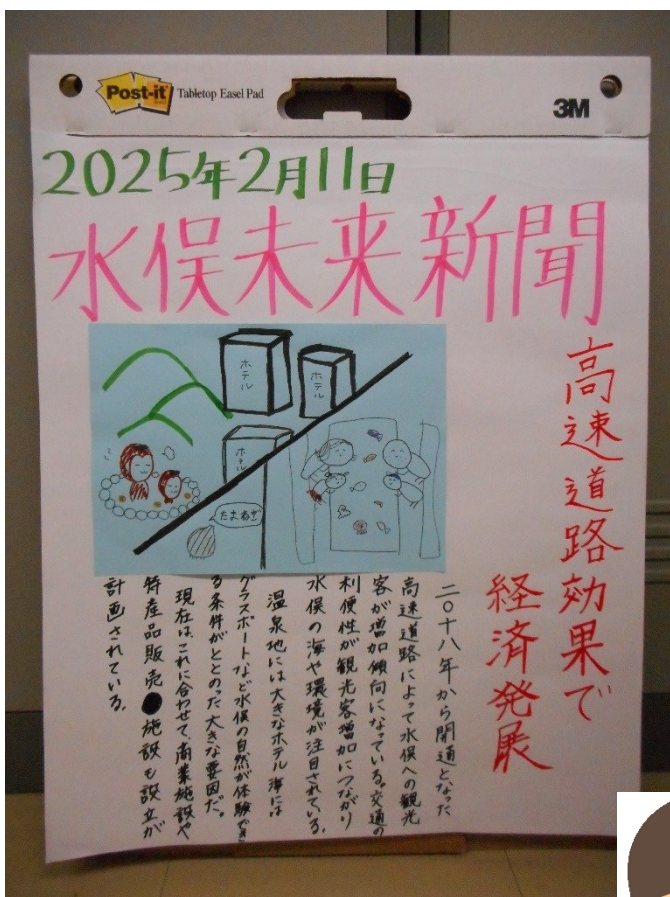 Post-it Tabletop Easel Pad
3M
2025年2月11日
水俣未来新聞
高速道路効果で
経済発展
ホテル
ホテル
ホテル
たまねぎ
二〇十八年から開通となった
高速道路によって水俣への観光
客が増加傾向になっている。交通の
利便性が観光客増加につながり
水俣の海や環境が注目されている。
温泉地には大きなホテル海には
グラスボートなど水俣の自然が体験でき
る条件がととのった大きな要因だ。
現在は、これに合わせて、商業施設や
特産品販売●施設も設立が
計画されている。